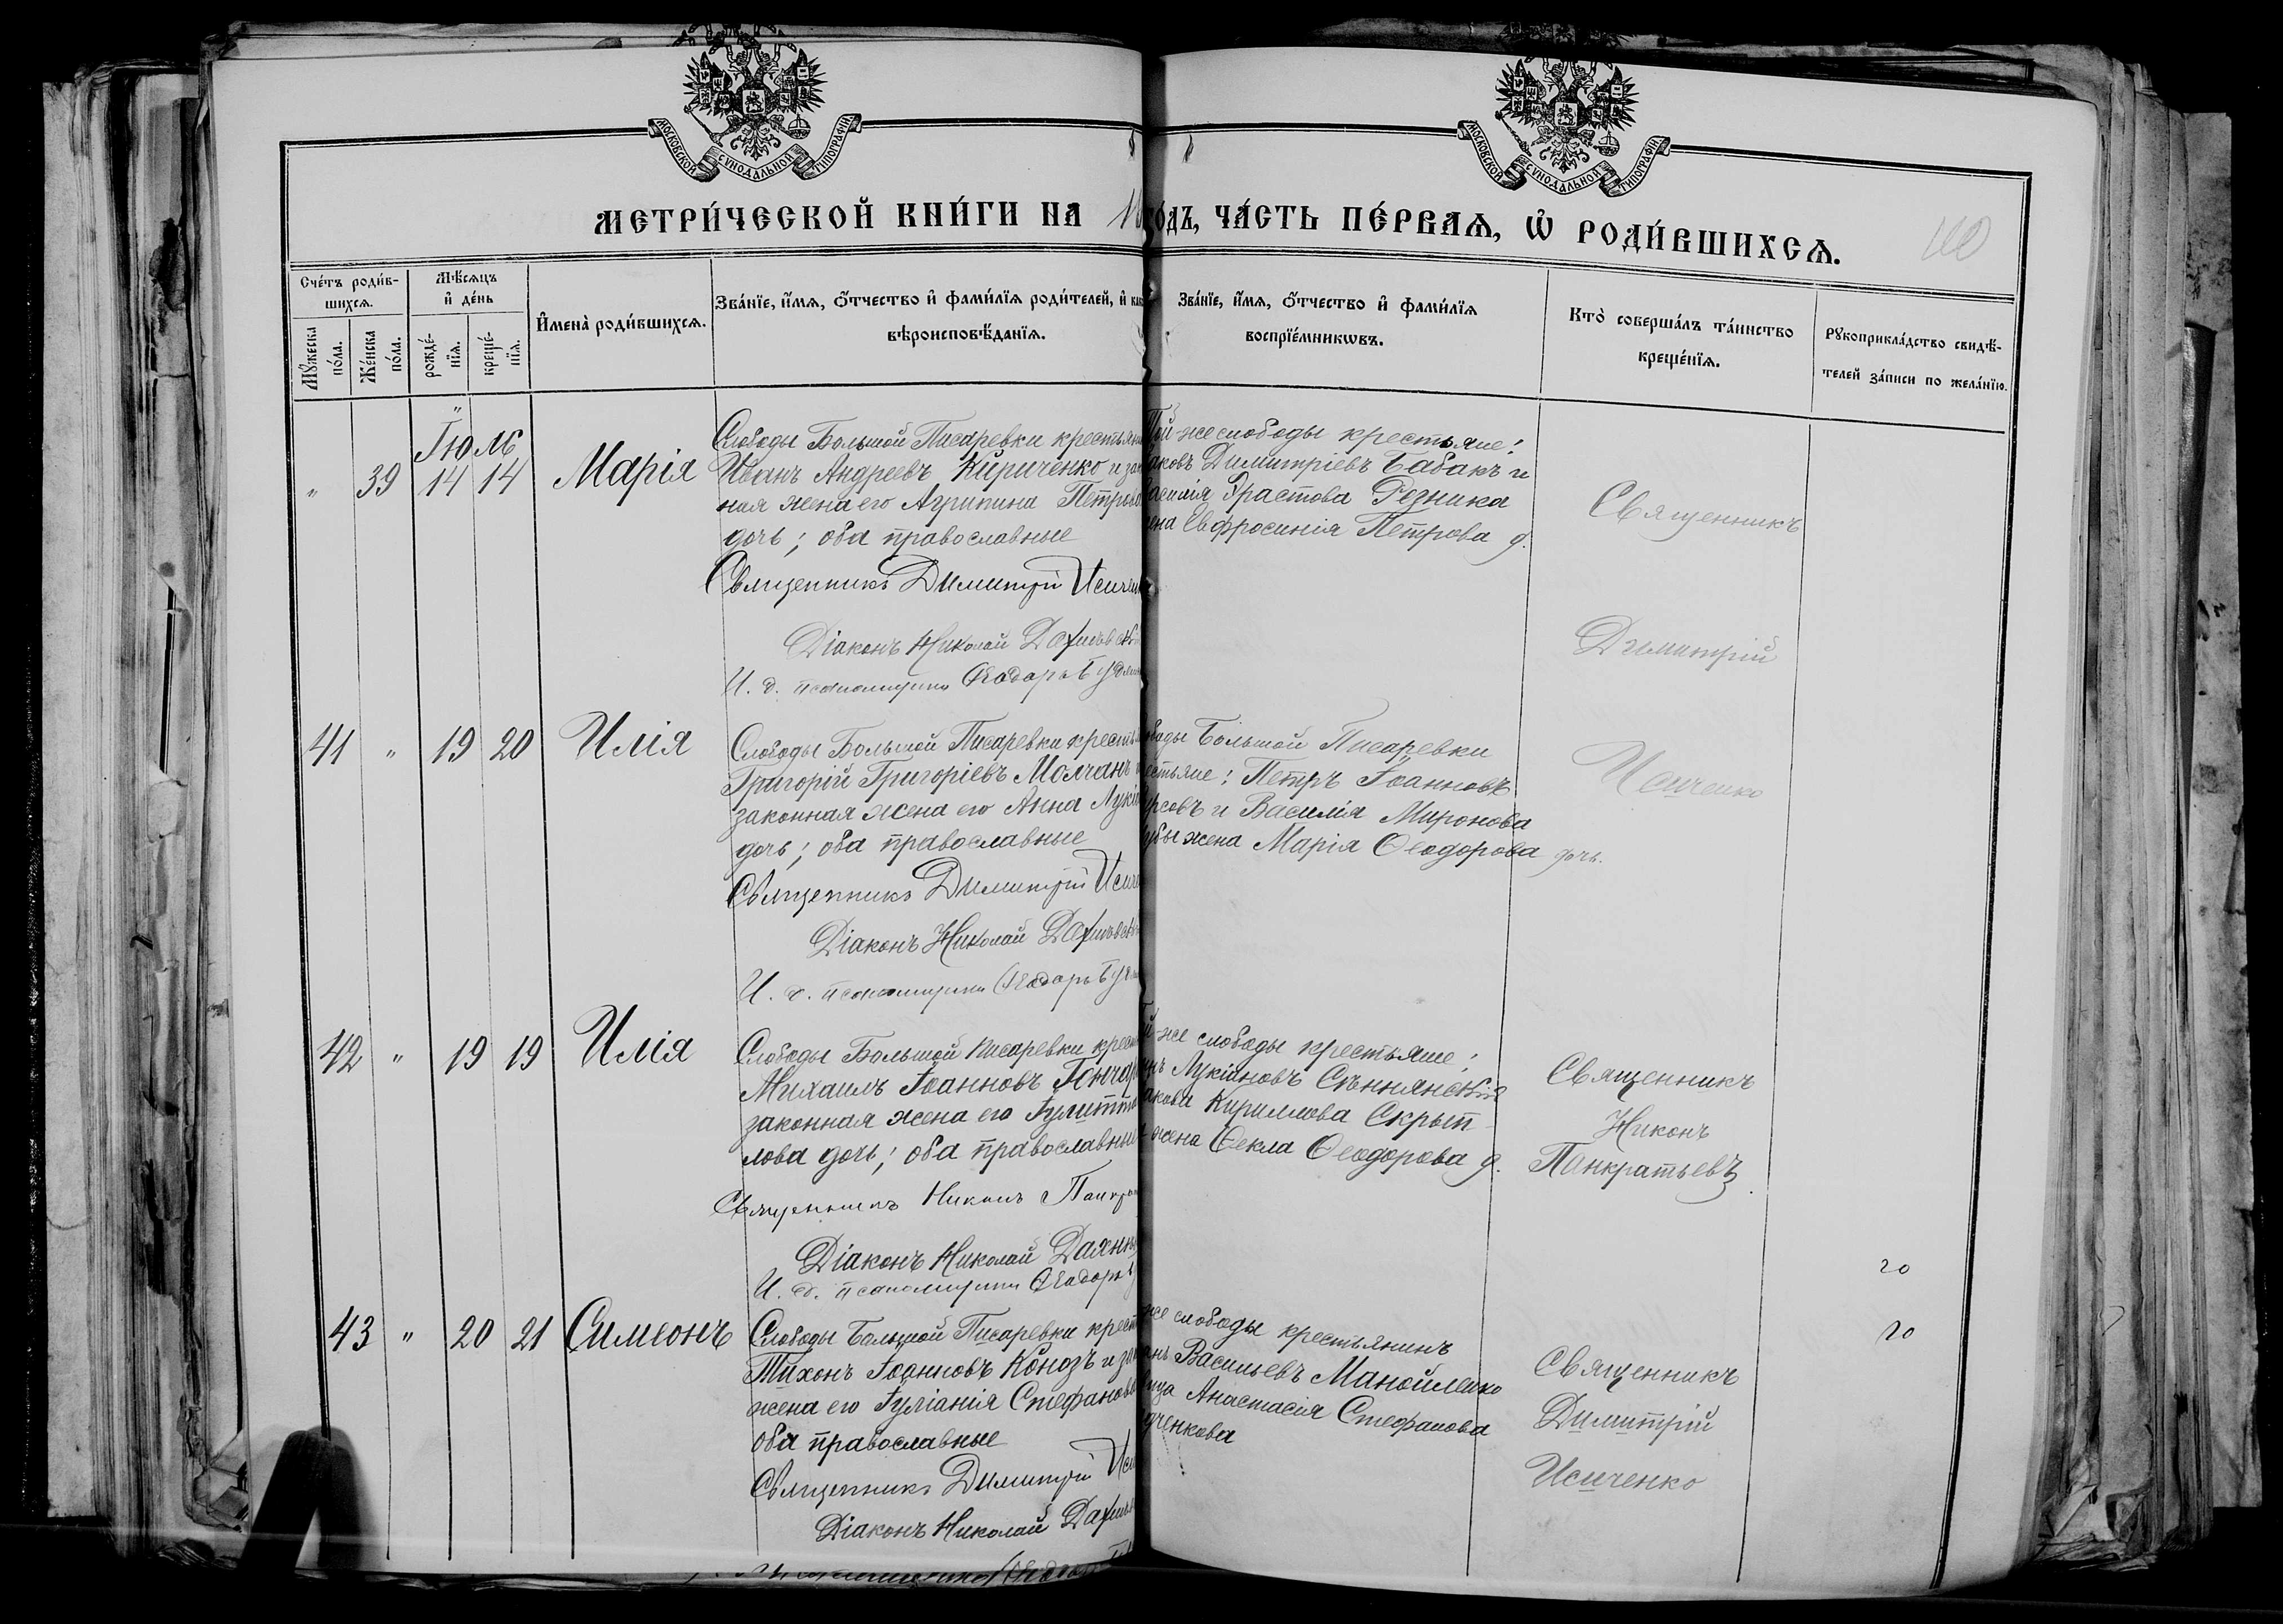 МОСКОВСКОЙ СУНОДАЛЬНОЙ ТИПОГРАФІИ
МОСКОВСКОЙ СУНОДАЛЬНОЙ ТИПОГРАФІИ
МЕТРИ́ЧЕСКОЙ КНИ́ГИ НА
го́дъ, ЧА́СТЬ ПЕ́РВАѦ, Ѡ҆ РОДИ́ВШИХСѦ.
110
Сче́тъ роди́в-
шихсѧ.
Мꙋ́жеска по́ла.
Же́нска по́ла.
Мѣ́сѧцъ
и҆ де́нь
рожде́-
нїѧ.
креще́-
нїѧ.
И҆мена̀ роди́вшихсѧ.
Зва́нїе, и҆́мѧ, ѻ҆́тчество и҆ фами́лїѧ роди́телей, и҆
вѣроисповѣ́данїѧ.
Зва́нїе, и҆́мѧ, ѻ҆́тчество и҆ фами́лїѧ
воспрїе́мникѡвъ.
Кто̀ соверша́лъ та́инство
креще́нїѧ.
Рꙋкоприкла́дство свидѣ́-
телей за́писи по жела́нїю.
Іюль
" 39 14 14 Марія
Слободы Большой Писаревки крестьянинъ
Иванъ Андреевъ Кириченко и
ная жена его Агрипина Петрова
дочь; оба православные
Священникъ Димитрій Исиченко
Діаконъ Николай
И. д. псаломщика Ѳеодоръ
Той-же слободы крестьяне:
Димитріевъ Бабакъ и
Василія Ѳрастова Резника
жена Евфросинія Петрова д.
Священникъ
Димитрій
Исиченко
41 " 19 20 Илія
Слободы Большой Писаревки
Григорій Григоріевъ Молчанъ и
законная жена его Анна
дочь; оба православные
Священникъ Димитрій
Діаконъ Николай
И. д. псаломщика Ѳеодоръ
Большой Писаревки
Петръ Іоанновъ
и Василія Миронова
жена Марія Ѳеодорова дочь.
42 " 19 19 Илія
Слободы Большой Писаревки
Михаилъ Іоанновъ
законная жена его
лова дочь; оба православные
Священникъ Никонъ
Діаконъ Николай
И. д. псаломщика Ѳеодоръ
же слободы крестьяне:
Лукіановъ Сѣннянскій
Кириллова Скрып
жена Ѳекла Ѳеодорова д.
Священникъ
Никонъ
Панкратьевъ.
43 " 20 21 Симеонъ
Слободы Большой Писаревки
Тихонъ Іоанновъ Коноз и
жена его Іуліанія Стефанова
оба православные
Священникъ Димитрій
Діаконъ Николай
же слободы крестьянинъ
Васильевъ Манойленко
Анастасія Стефанова
Священникъ
Димитрій
Исиченко